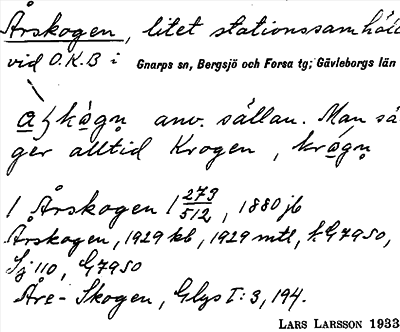 Årskogen, litet stationssamhäll
vid O.K.B i Gnarps sn, Bergsjö och Forsa tg; Gävleborgs län
anv. sällan. Man sä
ger alltid Krogen, krógn
/ Årskogen 1 273/512, 1880 jb
Årskogen, 1929 kb, 1929 mtl, f. G7950,
Sj 110, G7950
Åre-Skogen, Glys I:3, 194.
LARS LARSSON 1933